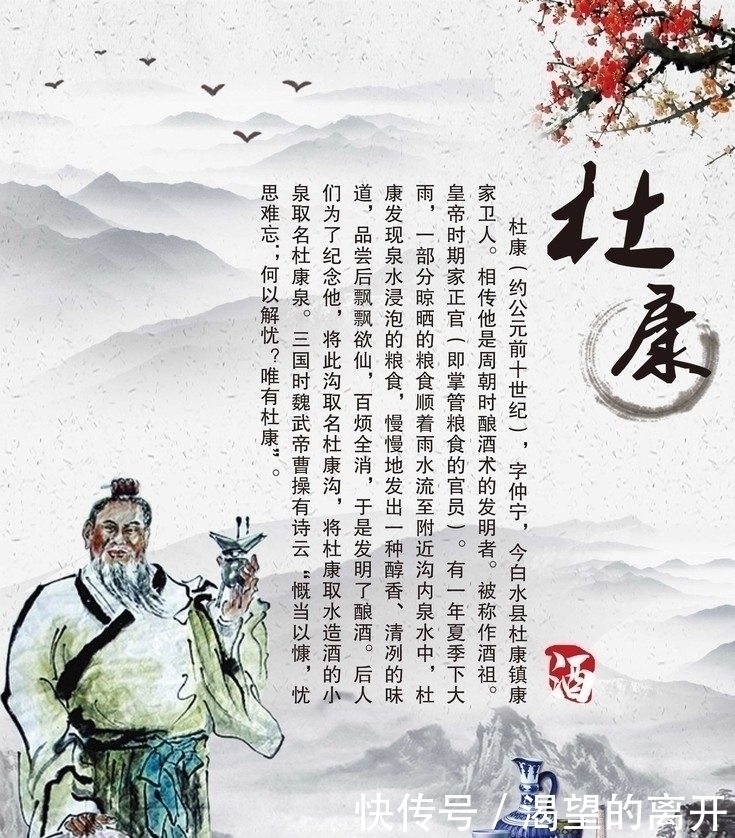 杜康
杜康（约公元前十世纪），字仲宁，今白水县杜康镇康
家卫人。相传他是周朝时酿酒术的发明者。被称作酒祖。
皇帝时期家正官（即掌管粮食的官员）。有一年夏季下大
雨，一部分晾晒的粮食顺着雨水流至附近沟内泉水中，杜
康发现泉水浸泡的粮食，慢慢地发出一种醇香、清冽的味
道，品尝后飘飘欲仙，百烦全消，于是发明了酿酒。后人
们为了纪念他，将此沟取名杜康沟，将杜康取水造酒的小
泉取名杜康泉。三国时魏武帝曹操有诗云“慨当以慷，忧
思难忘；何以解忧？唯有杜康”。
酒
快传号 / 渴望的离开